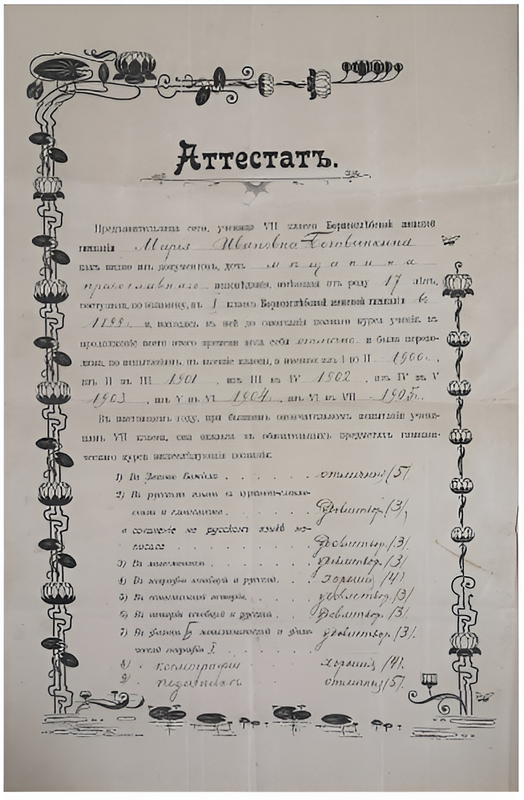 Аттестатъ.
Предъявительница сего, ученица VII класса Борисоглѣбской женской
гимназіи Марія Ивановна
какъ видно изъ документовъ, дочь мѣщанина
православнаго исповѣданія, имѣющая отъ роду 17 лѣтъ,
поступила, по экзамену, въ I классъ Борисоглѣбской женской гимназіи въ
1899 г. и, находясь въ ней до окончанія полнаго курса ученія, въ
продолженіе всего этого времени вела себя отлично и была переведена,
по испытаніямъ, въ высшіе классы, а именно: изъ I во II 1900 г.,
изъ II въ III 1901, изъ III въ IV 1902, изъ IV въ V
1903, изъ V въ VI 1904, изъ VI въ VII 1905 г.
Въ настоящемъ году, при бывшемъ окончательномъ испытаніи ученицъ
VII класса, она оказала въ обязательныхъ предметахъ гимназическаго
курса нижеслѣдующія познанія:
1) Въ Законѣ Божіемъ отличныя /5/
2) Въ русскомъ языкѣ
удовлетвор. /3/,
и сочиненіе на русскомъ языкѣ написала
удовлетвор. /3/
3) Въ удовлетвор. /3/
4) Въ географіи всеобщей и русской хорошія /4/
5) Въ удовлетвор. /3/
6) Въ исторіи всеобщей и русской удовлетвор. /3/
7) Въ математической и физической
географіи удовлетвор. /3/
8) космографіи хорошія /4/
9) педагогикѣ отличныя /5/